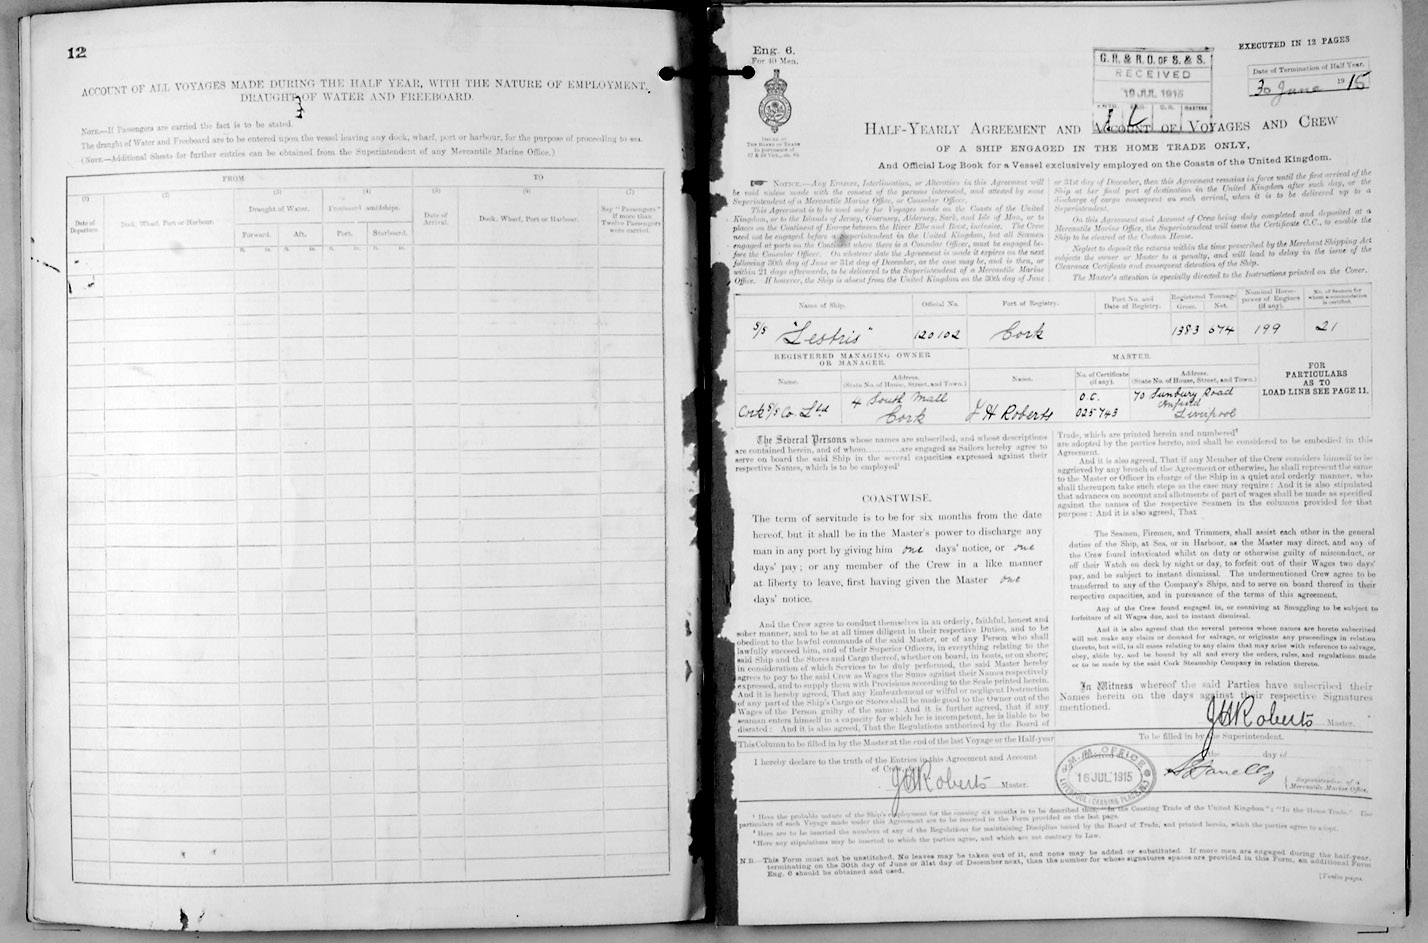 12
ACCOUNT OF ALL VOYAGES MADE DURING THE HALF YEAR, WITH THE NATURE OF EMPLOYMENT,
DRAUGHT OF WATER AND FREEBOARD.
NOTE.—If Passengers are carried the fact is to be stated.
The draught of Water and Freeboard are to be entered upon the vessel leaving any dock, wharf, port or harbour, for the purpose of proceeding to sea.
(NOTE.—Additional Sheets for further entries can be obtained from the Superintendent of any Mercantile Marine Office.)
FROM TO
(1) (2) (3) (4) (5) (6) (7)
Date of Departure. Dock, Wharf, Port or Harbour. Draught of Water. Freeboard amidships. Date of Arrival. Dock, Wharf, Port or Harbour. Say "Passengers" if more than Twelve Passengers were carried.
Forward. Aft. Port. Starboard.
ft. in. ft. in. ft. in. ft. in.
Eng. 6.
For 40 Men.
ISSUED BY
THE BOARD OF TRADE
G. R. & R. O. OF S. & S.
RECEIVED
19 JUL 1915
EXECUTED IN 12 PAGES
Date of Termination of Half Year.
30 June 1915
HALF-YEARLY AGREEMENT AND ACCOUNT OF VOYAGES AND CREW
OF A SHIP ENGAGED IN THE HOME TRADE ONLY,
And Official Log Book for a Vessel exclusively employed on the Coasts of the United Kingdom.
NOTICE.—Any Erasure, Interlineation, or Alteration in this Agreement will
be void unless made with the consent of the persons interested, and attested by some
Superintendent of a Mercantile Marine Office, or Consular Officer.
This Agreement is to be used only for Voyages made on the Coasts of the United
Kingdom, or to the Islands of Jersey, Guernsey, Alderney, Sark, and Isle of Man, or to
places on the Continent of Europe between the River Elbe and Brest, inclusive. The Crew
need not be engaged before a Superintendent in the United Kingdom, but all Seamen
engaged at ports on the Continent where there is a Consular Officer, must be engaged be-
fore the Consular Officer. On whatever date the Agreement is made it expires on the next
following 30th day of June or 31st day of December, as the case may be, and is then, or
within 21 days afterwards, to be delivered to the Superintendent of a Mercantile Marine
Office. If however, the Ship is absent from the United Kingdom on the 30th day of June
or 31st day of December, then this Agreement remains in force until the first arrival of the
Ship at her final port of destination in the United Kingdom after such day, or the
discharge of cargo consequent on such arrival, when it is to be delivered up to a
Superintendent.
On this Agreement and Account of Crew being duly completed and deposited at a
Mercantile Marine Office, the Superintendent will issue the Certificate C.C., to enable the
Ship to be cleared at the Custom House.
Neglect to deposit the returns within the time prescribed by the Merchant Shipping Act
subjects the owner or Master to a penalty, and will lead to delay in the issue of the
Clearance Certificate and consequent detention of the Ship.
The Master's attention is specially directed to the Instructions printed on the Cover.
Name of Ship. Official No. Port of Registry. Port No. and Date of Registry. Registered Tonnage Gross. Net. Nominal Horse-power of Engines (if any). No. of Seamen for whom accommodation is certified.
S/S "Lestris" 120102 Cork 1383 674 199 21
REGISTERED MANAGING OWNER OR MANAGER. MASTER.
Name. Address. (State No. of House, Street, and Town.) Name. No. of Certificate (if any). Address. (State No. of House, Street, and Town.)
FOR PARTICULARS AS TO LOAD LINE SEE PAGE 11.
Cork S/S Co. Ltd 4 South Mall Cork J H Roberts O.C. 025743 70 Sunbury Road Anfield Liverpool
The Several Persons whose names are subscribed, and whose descriptions
are contained herein, and of whom..........are engaged as Sailors hereby agree to
serve on board the said Ship in the several capacities expressed against their
respective Names, which is to be employed¹
COASTWISE.
The term of servitude is to be for six months from the date
hereof, but it shall be in the Master's power to discharge any
man in any port by giving him one days' notice, or one
days' pay; or any member of the Crew in a like manner
at liberty to leave, first having given the Master one
days' notice.
And the Crew agree to conduct themselves in an orderly, faithful, honest and
sober manner, and to be at all times diligent in their respective Duties, and to be
obedient to the lawful commands of the said Master, or of any Person who shall
lawfully succeed him, and of their Superior Officers, in everything relating to the
said Ship and the Stores and Cargo thereof, whether on board, in boats, or on shore;
in consideration of which Services to be duly performed, the said Master hereby
agrees to pay to the said Crew as Wages the Sums against their Names respectively
expressed, and to supply them with Provisions according to the Scale printed herein.
And it is hereby agreed, That any Embezzlement or wilful or negligent Destruction
of any part of the Ship's Cargo or Stores shall be made good to the Owner out of the
Wages of the Person guilty of the same: And it is further agreed, that if any
seaman enters himself in a capacity for which he is incompetent, he is liable to be
disrated: And it is also agreed, That the Regulations authorized by the Board of
Trade, which are printed herein and numbered²
are adopted by the parties hereto, and shall be considered to be embodied in this
Agreement.
And it is also agreed, That if any Member of the Crew considers himself to be
aggrieved by any breach of the Agreement or otherwise, he shall represent the same
to the Master or Officer in charge of the Ship in a quiet and orderly manner, who
shall thereupon take such steps as the case may require: And it is also stipulated
that advances on account and allotments of part of wages shall be made as specified
against the names of the respective Seamen in the columns provided for that
purpose: And it is also agreed, That
The Seamen, Firemen, and Trimmers, shall assist each other in the general
duties of the Ship, at Sea, or in Harbour, as the Master may direct, and any of
the Crew found intoxicated whilst on duty or otherwise guilty of misconduct, or
off their Watch on deck by night or day, to forfeit out of their Wages two days'
pay, and be subject to instant dismissal. The undermentioned Crew agree to be
transferred to any of the Company's Ships, and to serve on board thereof in their
respective capacities, and in pursuance of the terms of this agreement.
Any of the Crew found engaged in, or conniving at Smuggling to be subject to
forfeiture of all Wages due, and to instant dismissal.
And it is also agreed that the several persons whose names are hereto subscribed
will not make any claim or demand for salvage, or originate any proceedings in relation
thereto, but will, in all cases relating to any claim that may arise with reference to salvage,
obey, abide by, and be bound by all and every the orders, rules, and regulations made
or to be made by the said Cork Steamship Company in relation thereto.
In Witness whereof the said Parties have subscribed their
Names herein on the days against their respective Signatures
mentioned.
J H Roberts Master.
This Column to be filled in by the Master at the end of the last Voyage or the Half-year
I hereby declare to the truth of the Entries in this Agreement and Account
of Crew,
J H Roberts Master.
To be filled in by the Superintendent.
M. M. OFFICE
16 JUL 1915
LIVERPOOL (CANNING PLACE, N.)
the day of
Superintendent of a Mercantile Marine Office.
¹ Here the probable nature of the Ship's employment for the ensuing six months is to be described thus, "In the Coasting Trade of the United Kingdom"; "In the Home Trade." The
particulars of each Voyage made under this Agreement are to be inserted in the Form provided on the last page.
² Here are to be inserted the numbers of any of the Regulations for maintaining Discipline issued by the Board of Trade, and printed herein, which the parties agree to adopt.
³ Here any stipulations may be inserted to which the parties agree, and which are not contrary to Law.
N.B.—This Form must not be unstitched. No leaves may be taken out of it, and none may be added or substituted. If more men are engaged during the half-year,
terminating on the 30th day of June or 31st day of December next, than the number for whose signatures spaces are provided in this Form, an additional Form
Eng. 6 should be obtained and used.
[Twelve pages